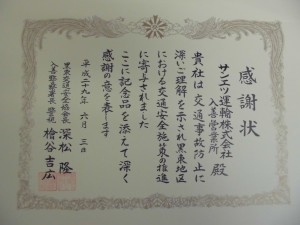 感謝状
サンエツ運輸株式会社
入善営業所
殿
貴社は交通事故防止に
深いご理解を示され黒東地区
における交通安全施策の推進
に寄与されました
ここに記念品を添えて深く
感謝の意を表します
平成二十九年六月三日
黒東交通安全協会長 深松 隆
入善警察署長 警視 桧谷吉広